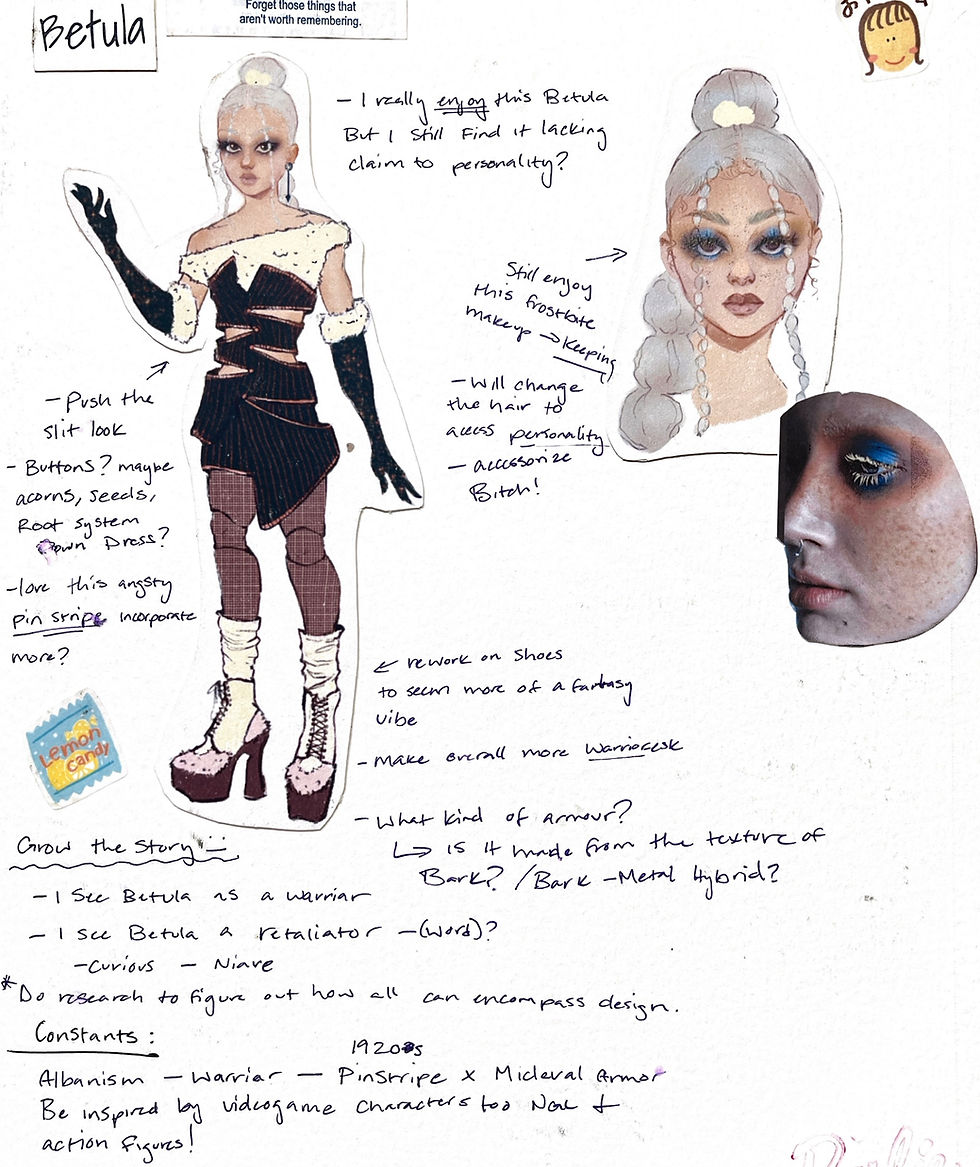 Betula
Forget those things that
aren't worth remembering.
- I really enjoy this Betula
But I still Find it lacking
claim to personality?
Still enjoy
this frostbite
makeup → Keeping
- Will change
the hair to
access personality
- accessorize
Bitch!
- Push the
slit look
- Buttons? maybe
acorns, seeds,
Root system
Down Dress?
- love this angsty
pin stripe incorporate
more?
Lemon
candy
← rework on shoes
to seem more of a fantasy
vibe
- Make overall more Warrioresk
- What kind of armour?
↳ is it made from the texture of
Bark? / Bark - Metal Hybrid?
Grow the Story
- I see Betula as a warriar
- I see Betula a retaliator - (word)?
- Curious - Niave
* Do research to figure out how all can encompass design.
Constants :
1920s
Albanism - Warriar - PinStripe x Mideval Armor
Be inspired by videogame characters too +
action figures!